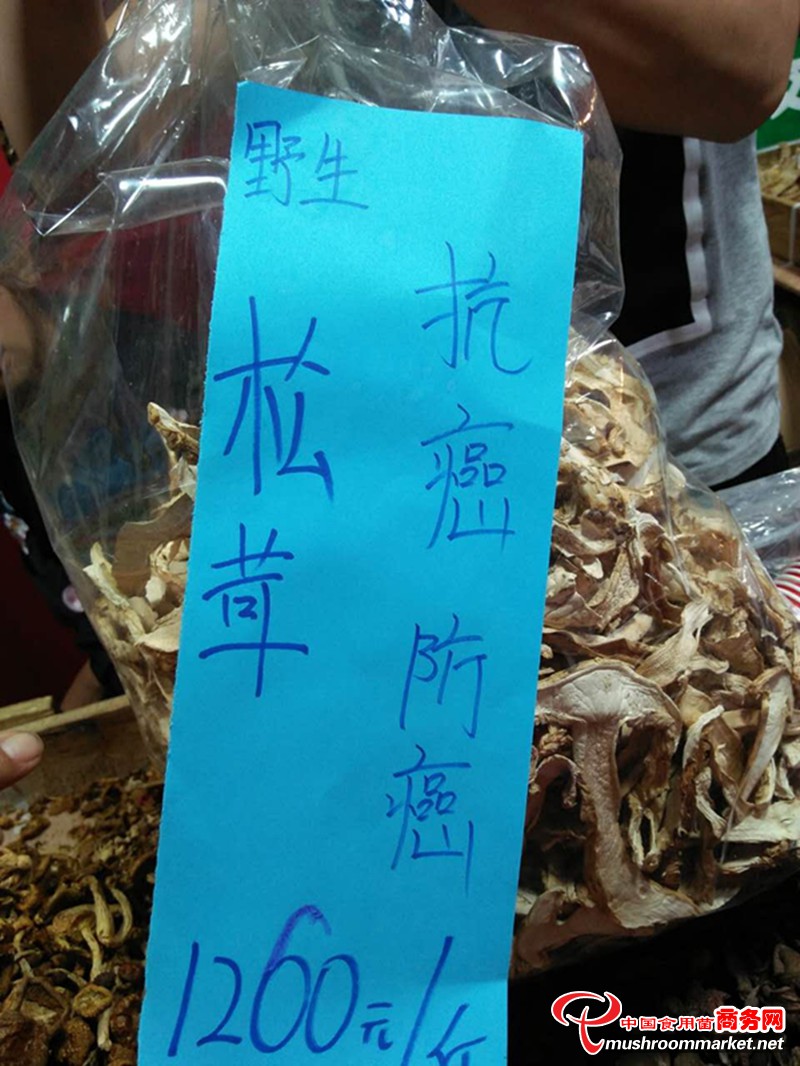 野生
松茸
抗癌 防癌
1260元/斤
中国食用菌商务网
mushroommarket.net